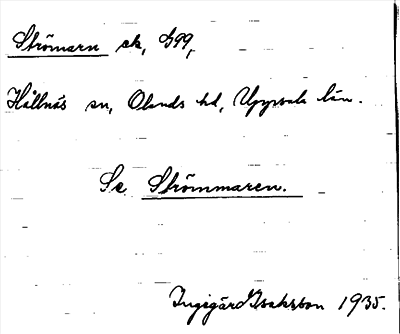 Strömarn sk, G99,
Hållnäs sn, Olands hd, Uppsala län.
Se Strömmaren.
Ingegärd Isaksson 1935.